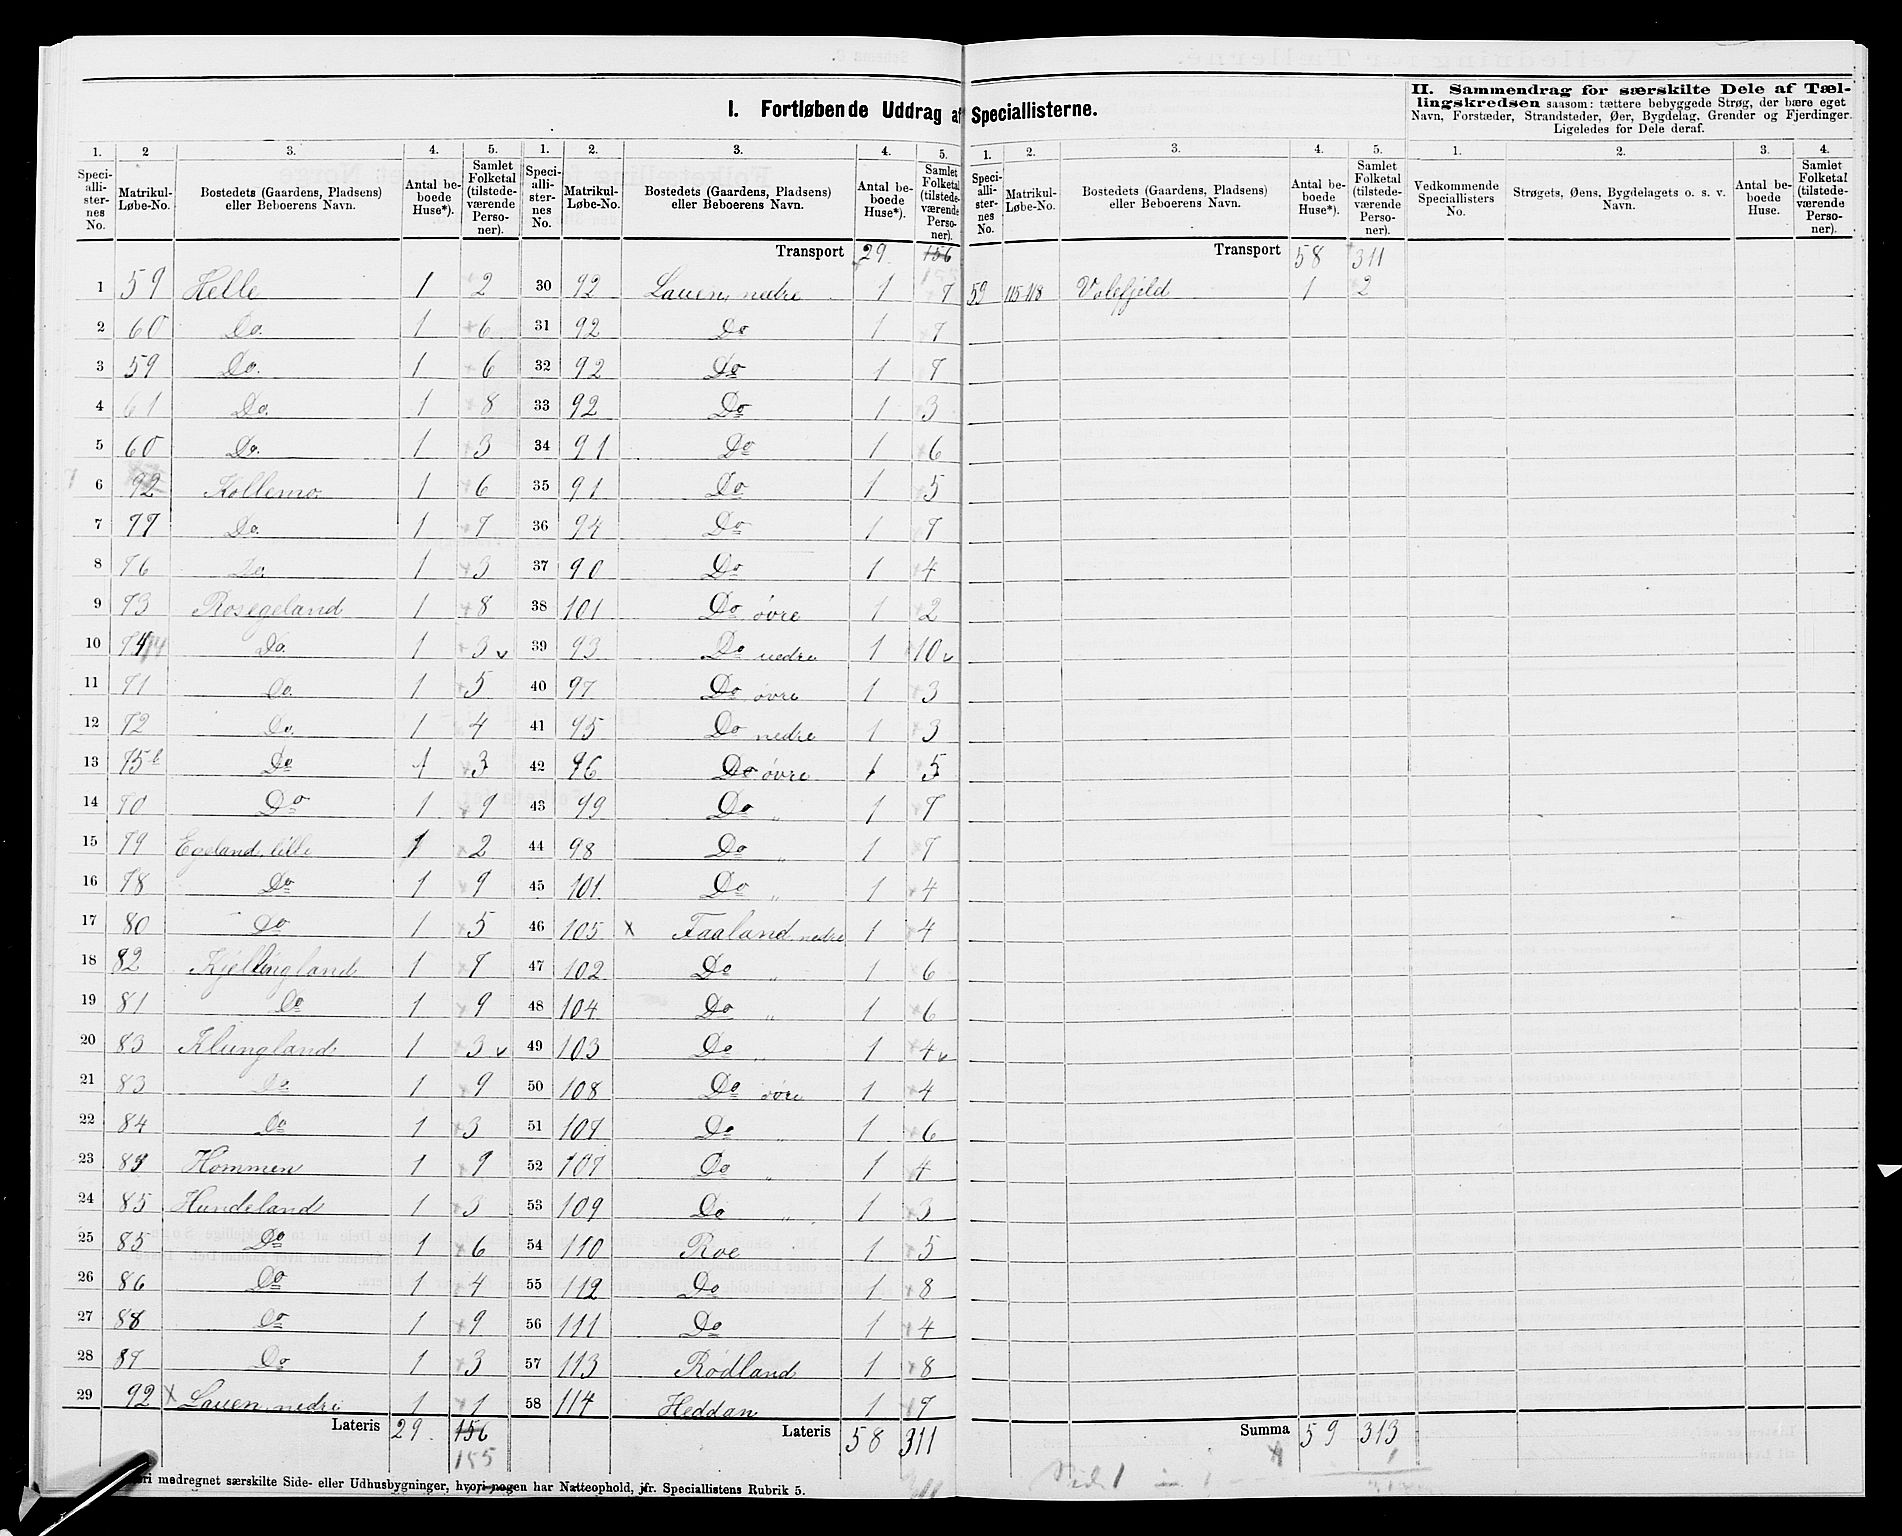 I. Fortløbende Uddrag af Speciallisterne.
II. Sammendrag for særskilte Dele af Tæl-
lingskredsen saasom: tættere bebyggede Strøg, der bære eget
Navn, Forstæder, Strandsteder, Øer, Bygdelag, Grender og Fjerdinger.
Ligeledes for Dele deraf.
1. 2 3. 4. 5. 1. 2. 3. 4. 5. 1. 2. 3. 4. 5. 1. 2. 3. 4.
Speciallisternes No. Matrikul-Løbe-No. Bostedets (Gaardens, Pladsens) eller Beboerens Navn. Antal beboede Huse*). Samlet Folketal (tilstedeværende Personer).
Speciallisternes No. Matrikul-Løbe-No. Bostedets (Gaardens, Pladsens) eller Beboerens Navn. Antal beboede Huse*). Samlet Folketal (tilstedeværende Personer).
Speciallisternes No. Matrikul-Løbe-No. Bostedets (Gaardens, Pladsens) eller Beboerens Navn. Antal beboede Huse*). Samlet Folketal (tilstedeværende Personer).
Vedkommende Speciallisters No. Strøgets, Øens, Bygdelagets o. s. v. Navn. Antal beboede Huse. Samlet Folketal (tilstedeværende Personer).
1 59 Helle 1 2
2 60 Do. 1 6
3 59 Do. 1 6
4 61 Do. 1 8
5 60 Do. 1 3
6 92 Kollemo 1 6
7 77 Do. 1 7
8 76 Do. 1 3
9 73 Rosegeland 1 8
10 74 Do. 1 3 v
11 71 Do. 1 5
12 72 Do. 1 4
13 75b Do 1 3
14 70 Do 1 9
15 79 Egeland, lille 1 2
16 78 Do 1 9
17 80 Do 1 5
18 82 Kjellingland 1 7
19 81 Do 1 9
20 83 Klungland 1 3 v
21 83 Do 1 9
22 84 Do 1 3
23 89 Hommen 1 9
24 85 Hundeland 1 3
25 85 Do 1 6
26 86 Do 1 4
27 88 Do 1 9
28 87 Do 1 3
29 92 x Lauen, nedre 1 1
Lateris 29. 156
155
Transport 29. 156
30 92 Lauen, nedre 1 7
31 92 Do 1 7
32 92 Do 1 7
33 92 Do 1 3
34 91 Do 1 6
35 91 Do 1 5
36 94 Do 1 7
37 90 Do 1 4
38 101 Do øvre 1 2
39 93 Do nedre 1 10 v
40 97 Do øvre 1 3
41 95 Do nedre 1 3
42 96 Do øvre 1 5
43 99 Do „ 1 7
44 98 Do „ 1 7
45 101 Do „ 1 4
46 105 x Faaland nedre 1 4
47 102 Do „ 1 6
48 104 Do „ 1 6
49 103 Do „ 1 4 v
50 108 Do øvre 1 4
51 107 Do „ 1 6
52 107 Do „ 1 4
53 109 Do „ 1 3
54 110 Roe 1 5
55 112 Do 1 8
56 111 Do 1 4
57 113 Rødland 1 8
58 114 Heddan 1 7
Lateris 58 311
Transport 58 311
59 115-118 Valefjeld 1 2
Summa 59 313
ori medregnet særskilte Side- eller Udhusbygninger, hvori nogen har Natteophold, jfr. Speciallistens Rubrik 5.